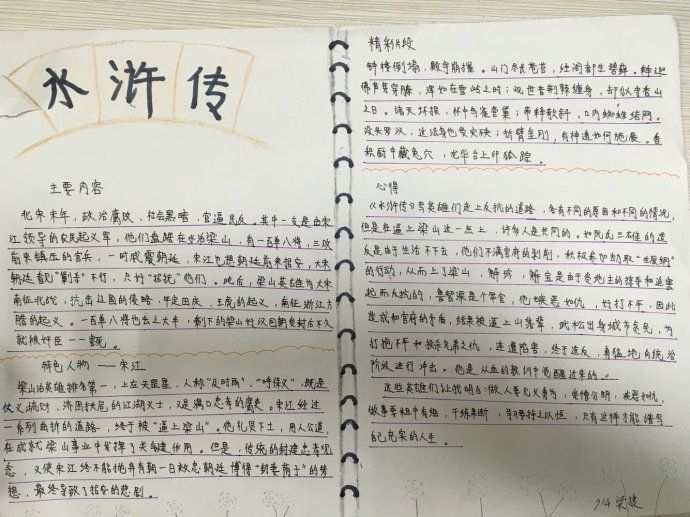 水浒传
主要内容
北宋末年，政治腐败，社会黑暗，官逼民反。其中一支是由宋
江领导的农民起义军，他们盘踞在水泊梁山，有一百单八将，三败
前来镇压的官兵，一时威震朝廷，宋江也想朝廷前来招安，大宋
朝廷看见"剿"不行，只好"招抚"他们。此后，梁山英雄为大宋
南征北战，抗击辽国的侵略，平定田虎、王庆的起义，南征浙江方
腊的起义。一百单八将也去之大半，剩下的梁山好汉回朝受封后不久
就被奸臣一一害死。
特色人物——宋江
梁山泊英雄排名第一，上应天罡星，人称"及时雨"、"呼保义"，既是
仗义疏财、济困扶危的江湖义士，又是满口忠孝的腐吏。宋江经过
一系列曲折的道路，终于被"逼上梁山"。他礼贤下士，用人公道，
在成就梁山事业中发挥了关键作用。但是，传统的封建忠孝观
念，又使宋江终不能抛弃有朝一日效忠朝廷博得"封妻荫子"的梦
想，最终导致了招安的悲剧。
精彩片段
钟楼倒塌，殿宇崩摧。山门尽长苍苔，经阁都生碧藓。释迦
佛芦芽穿膝，浑如在雪岭之时；观世音荆棘缠身，却似守香山
之日。诸天坏损，怀中鸟雀营巢；帝释欹斜，口内蜘蛛结网。
没头罗汉，这法身也受灾殃；折臂金刚，有神通如何施展。香
积厨中藏兔穴，龙华台上印狐踪。
心得
《水浒传》写英雄们走上反抗的道路，各有不同的原因和不同的情况，
但是在逼上梁山这一点上，许多人是共同的。如阮氏三雄的造
反是由于生活不下去，他们不满官府的剥削，积极参加劫取"生辰纲"
的行动，从而上了梁山。解珍、解宝是由于受地主的掠夺和迫害
起而反抗的。鲁智深是个军官，他嫉恶如仇，好打不平，因此
造成和官府的矛盾，结果被逼上山落草。武松出身城市贫民，为
打抱不平和报杀兄之仇，连遭陷害，终于造反，勇猛地向统治
阶级进行冲击。他是从血的教训中觉醒过来的。
这些英雄们让我明白：做人要见义勇为，爱憎分明，疾恶如仇，
做事要粗中有细，干练果断，学习要持之以恒，只有这样才能谱写
自己充实的人生。
914 梁捷